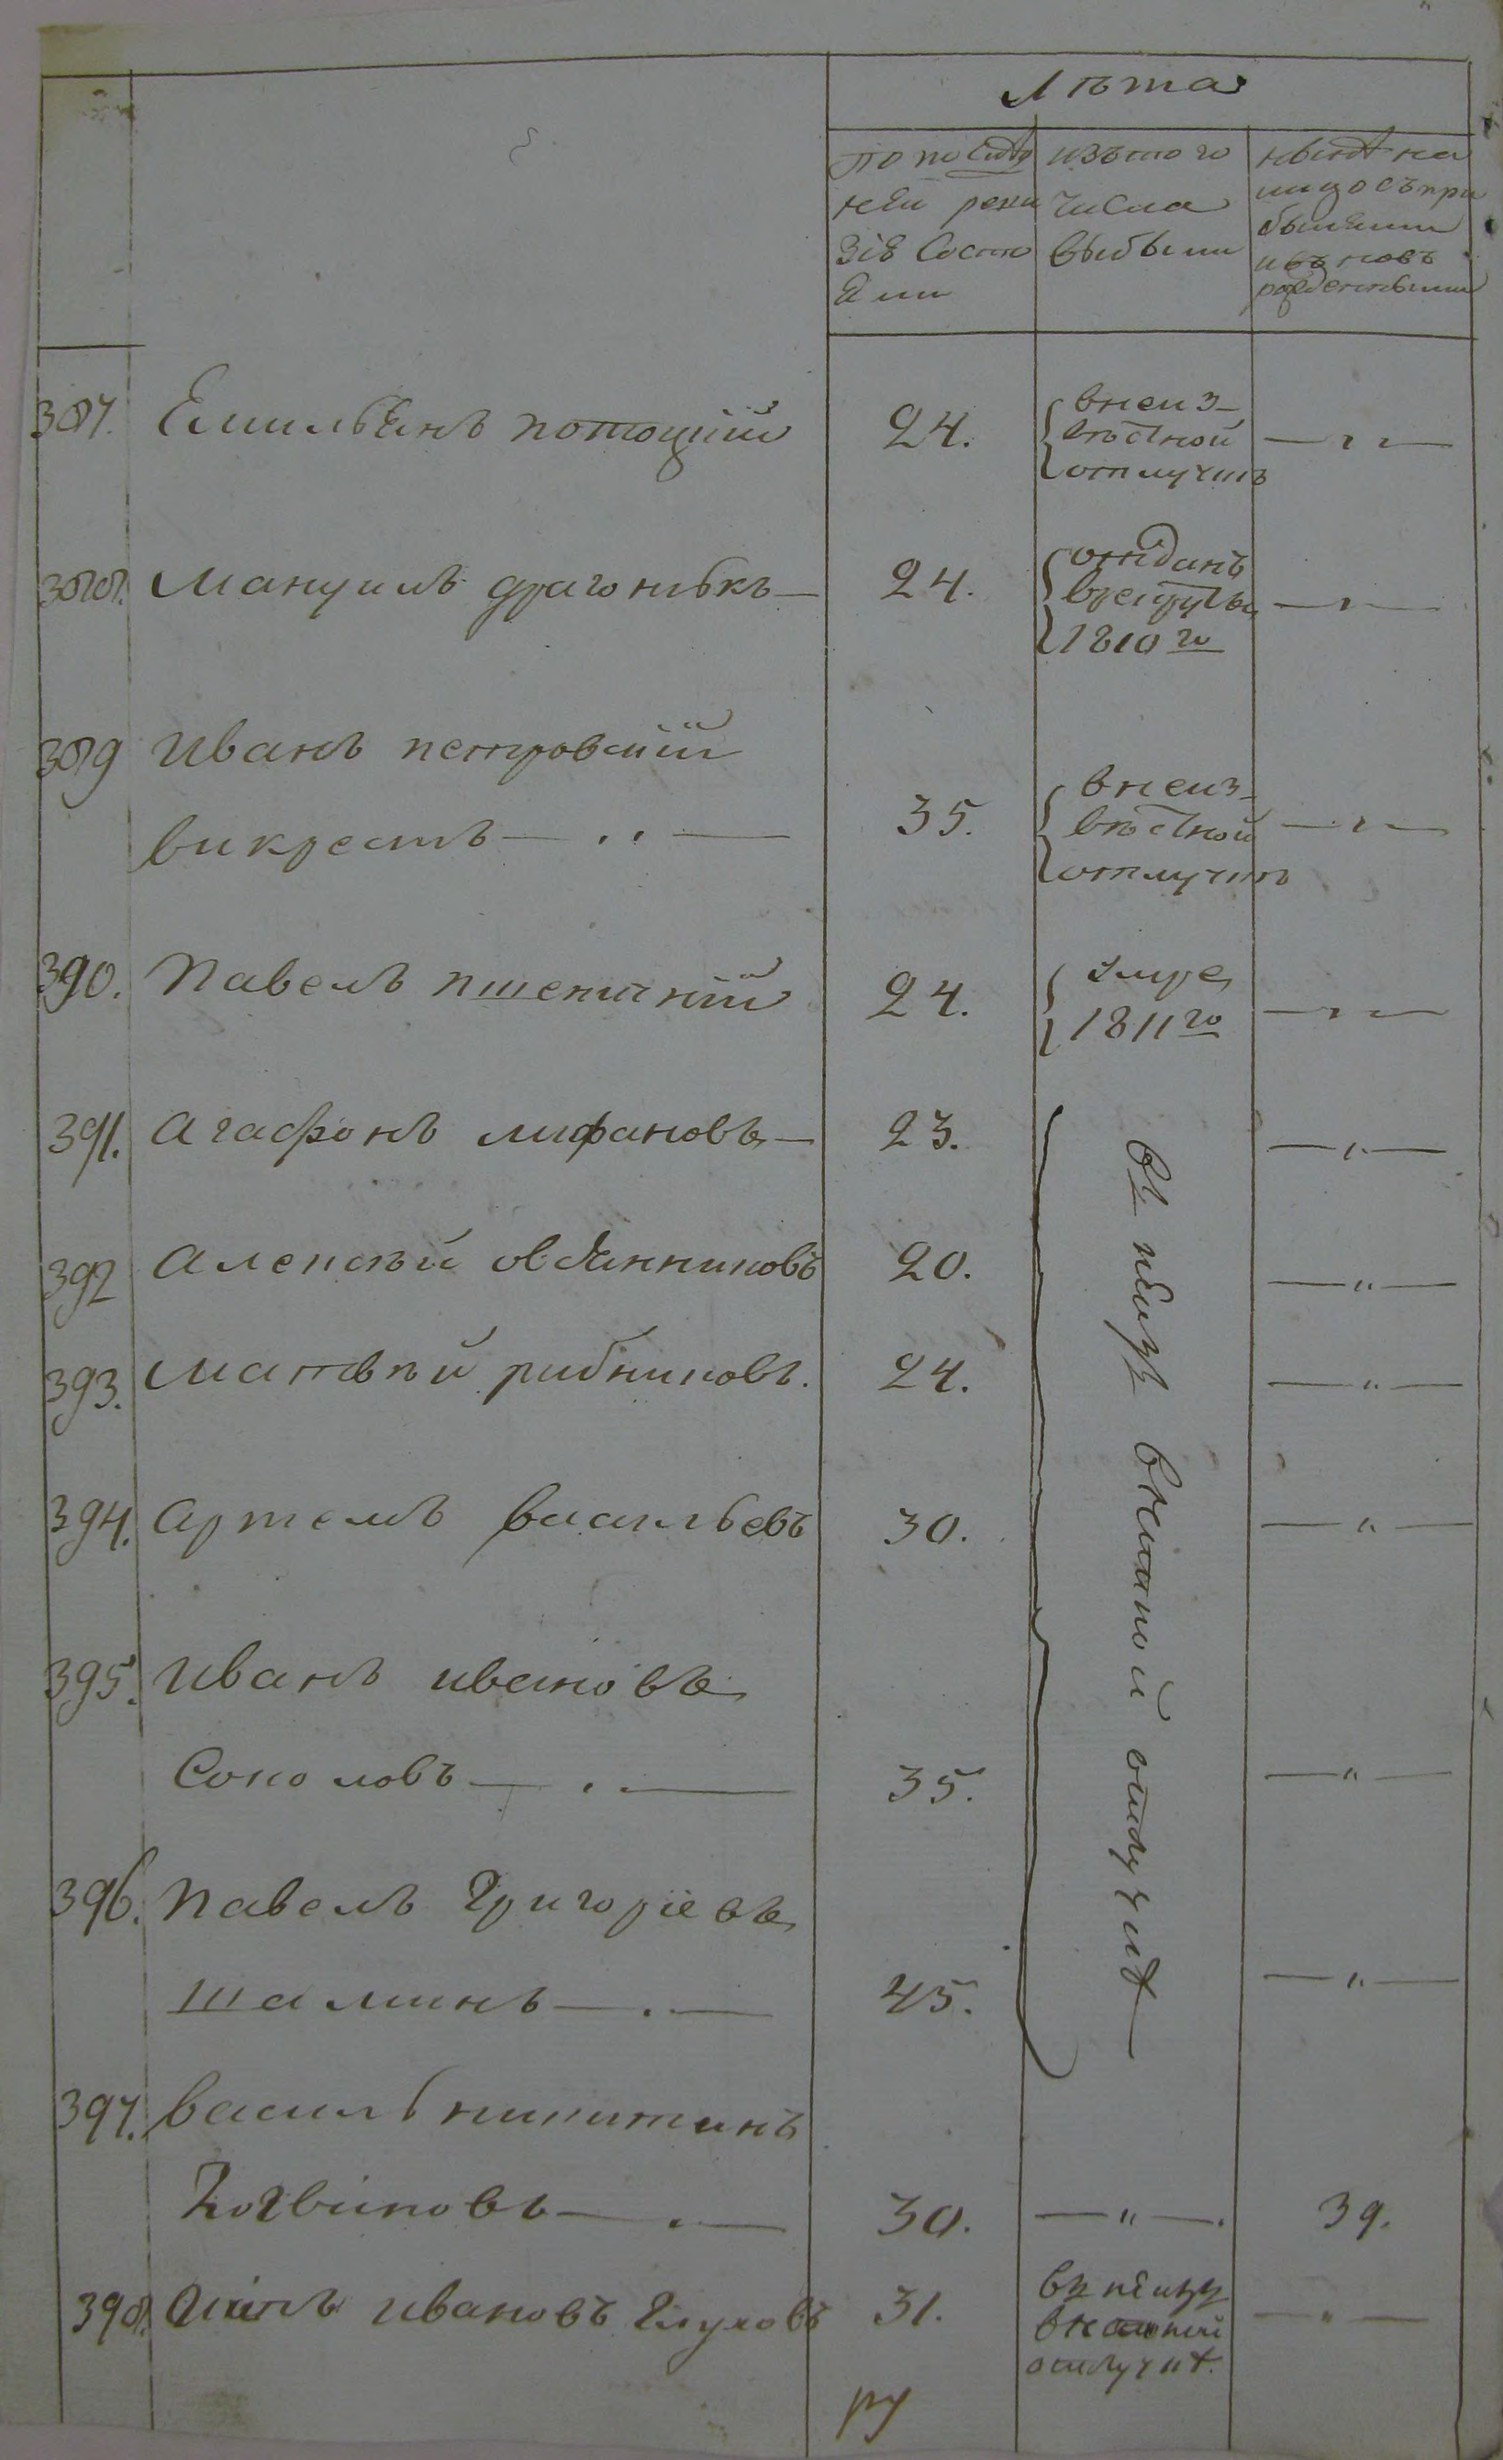 лѣта
по послѣд
ней реви
зіи состо
яли
изъ того
числа
выбыли
нынѣ на
лицо съ при
былыми
и въ новь
рожденными
387. Емильянъ потоцкій 24. в неиз-
вѣстной — " —
отлучкѣ
388. Мануилъ драгонюкъ — 24. отданъ
в рекруты — " —
1810го
389 Иванъ петровскій
викрестъ — " — 35. в неиз-
вѣстной — " —
отлучкѣ
390. Павелъ пшеничній 24. умре
1811го — " —
391. Агафонъ лифановъ — 23. — " —
392 Алексѣй овсянниковъ 20. — " —
393. Матвѣй рибниковъ. 24. — " —
394. Артемъ васильевъ 30. — " —
395. Иванъ ивановъ
Соколовъ — . — 35. — " —
396. Павелъ Григоріевъ
шаминъ — . — 45. — " —
отлучкѣ
397. Василь никитинъ
— . — 30. — " —. 39.
398. ивановъ Глуховъ 31. — " —
отлучкѣ.